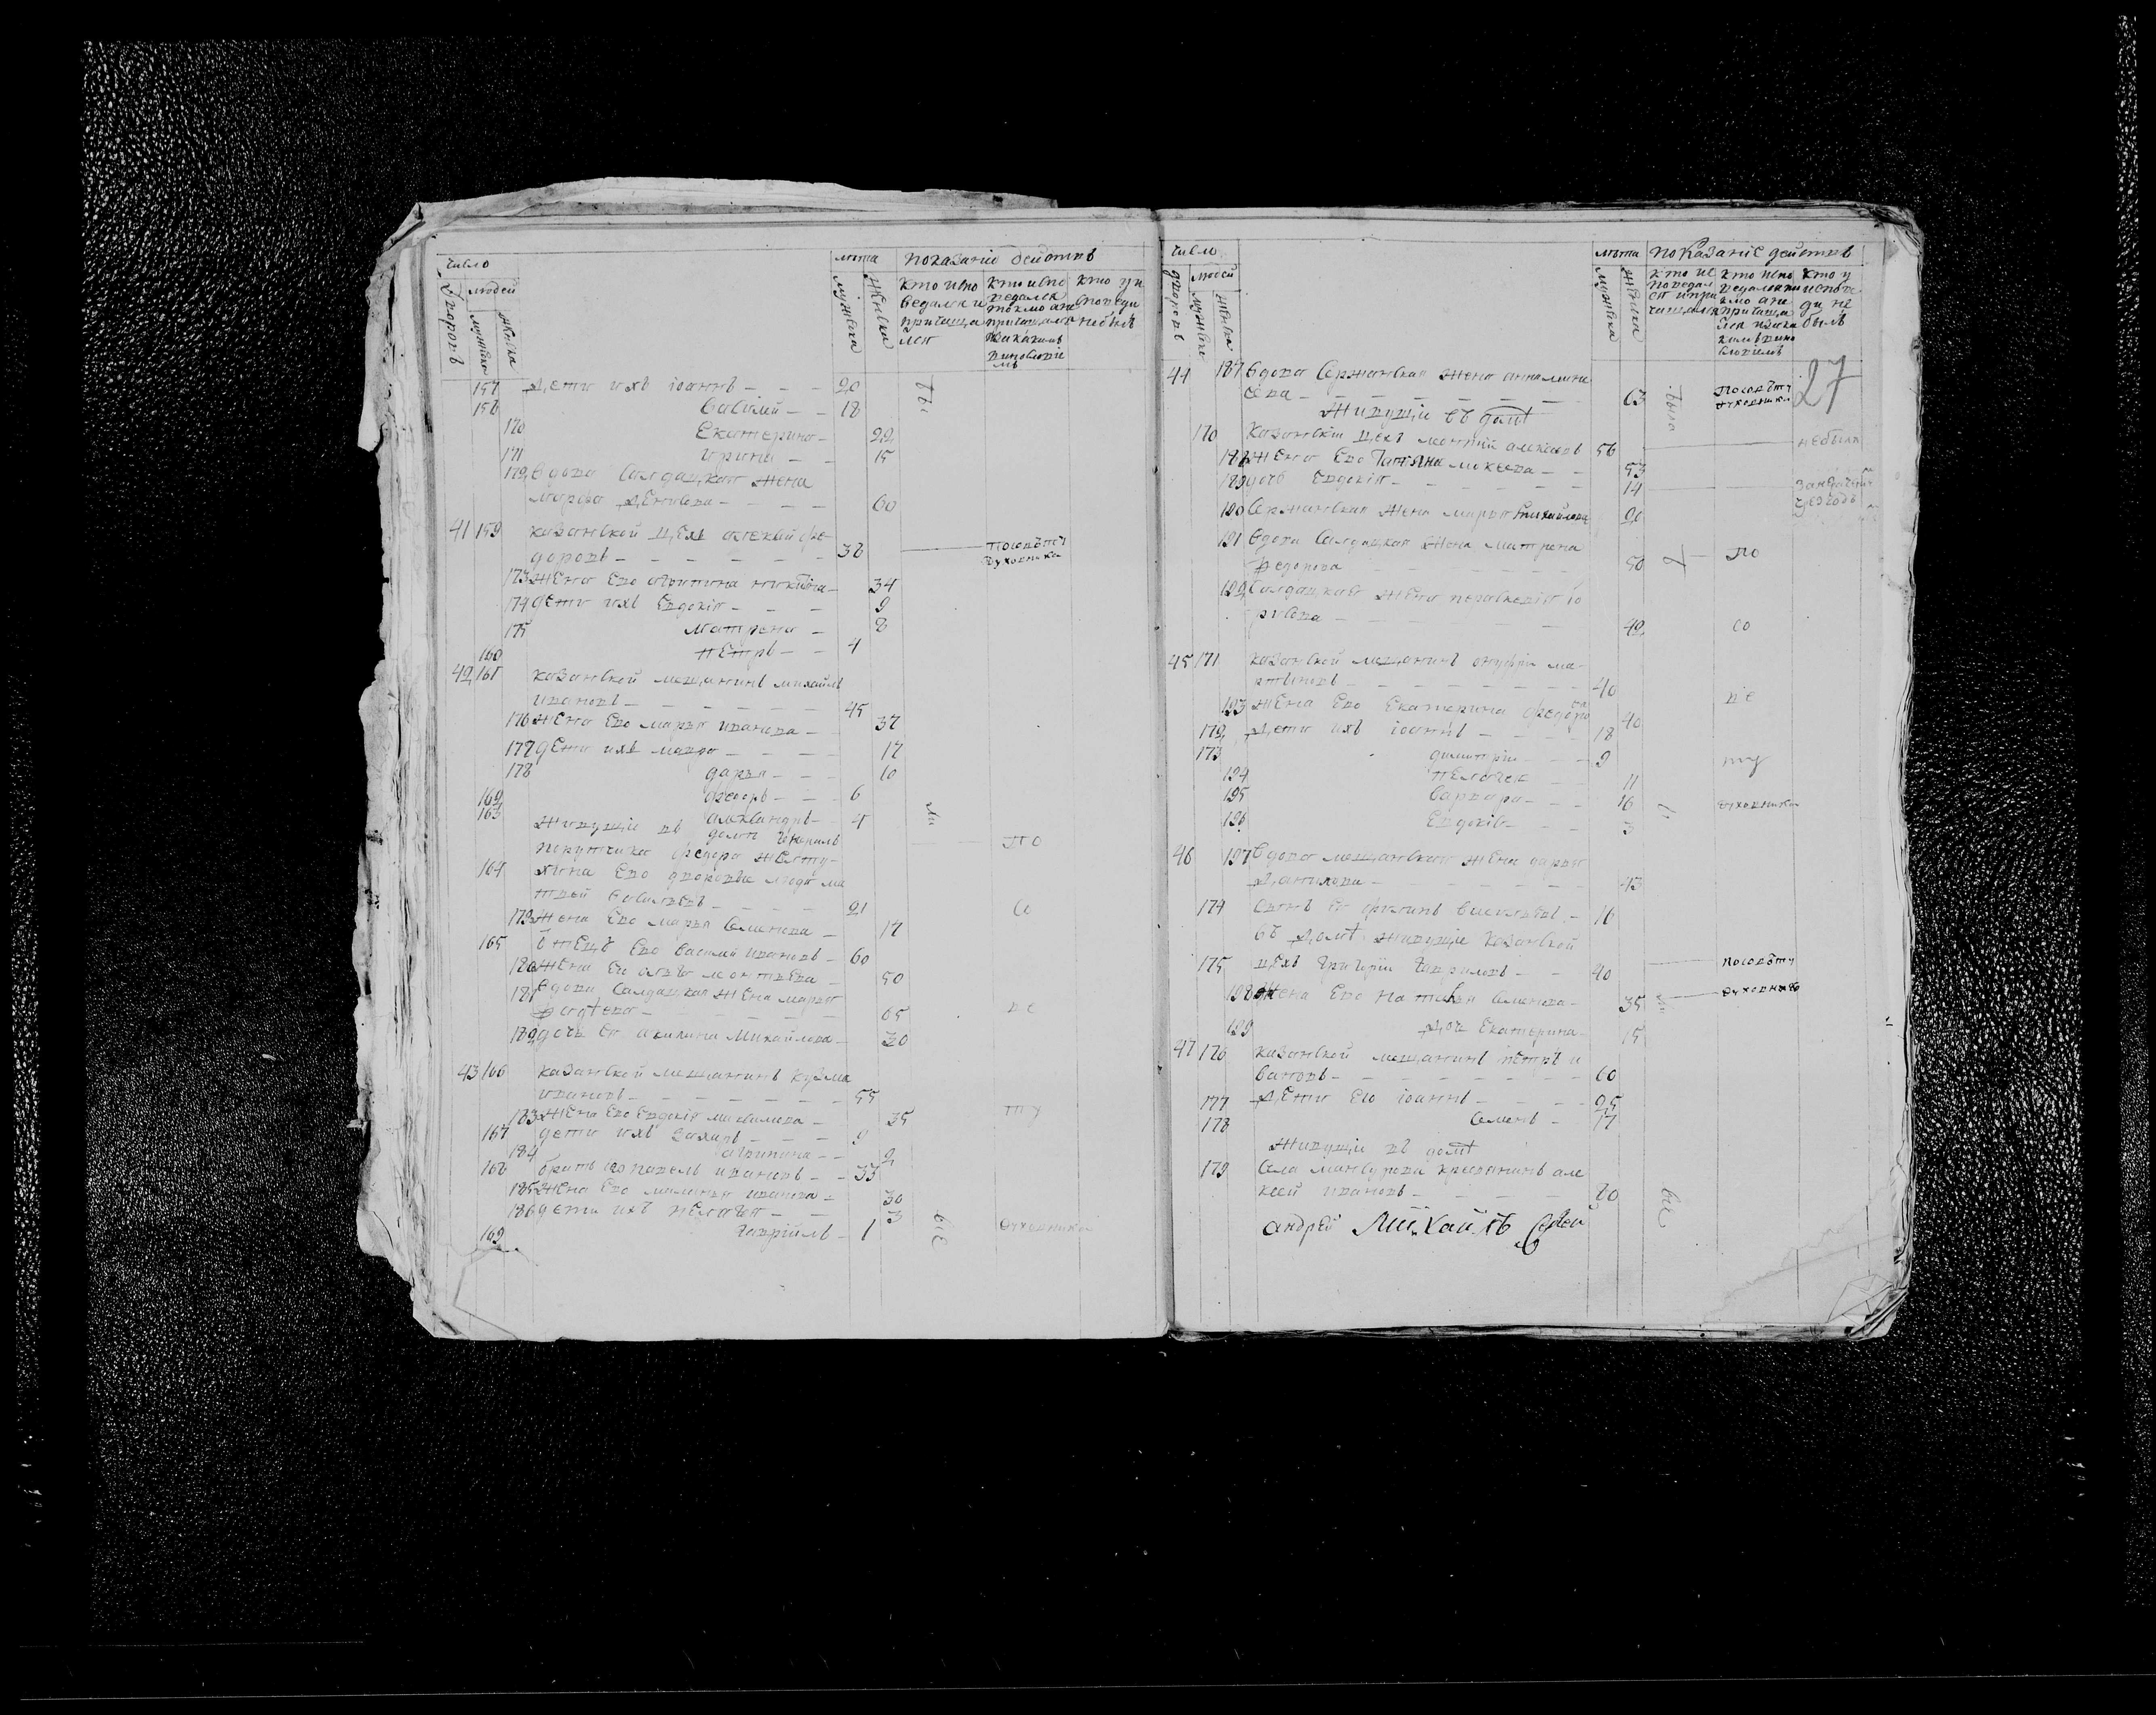 число
людей
дворовъ
мужеска
женска
лѣта
мужеска
женска
показаніе действъ
кто испо
ведался и
причаща
лся
кто испо
ведался
токмо а не
причащалс
и за какимъ
винословіе
мъ
кто у и
споведи
не былъ
157 Дети ихъ іоаннъ 20
158 василий 18
170 Екатерина 22
171 ирина 15
172 вдова салдацкая жена
марфа Денисова 60
41 159 казанской цехъ алексий фе
доровъ 38 По совету
духовника
173 жена ево агрипина никитина 34
174 дети ихъ Евдокія 9
175 матрена 8
160 петръ 4
42 161 казанской мещанинъ михайлъ
ивановъ 45
176 жена ево марья иванова 37
177 дети ихъ мавра 17
178 дарья 10
162 феодоръ 6
163 александръ 4
живущіе въ доме генералъ
порутчика федора желту-
164 хина ево дворовые люди ма
твей васильевъ 21
179 жена ево марья семенова 17
165 отецъ ево василий ивановъ 60
180 жена ево агафья матвѣева 50
181 вдова салдацкая жена марья
фадѣева 65
182 дочь ея акилина михайлова 30
43 166 казанской мещанинъ кузма
ивановъ 55
183 жена ево Евдокія максимова 35
167 дети ихъ захаръ 9
184 агрипина 2
168 братъ ево павелъ ивановъ 33
185 жена ево маланья иванова 30
186 дети ихъ пелагея 3
169 гаврійлъ 1
бы ли все
по со ве ту духовника
число
людей
дворовъ
мужеска
женска
лѣта
мужеска
женска
показаніе действъ
кто ис
поведал
ся и при
чащался
кто испо
ведался то
кмо а не
причаща
лся и за ка
кимъ вино
словіемъ
кто у
испове
ди не
былъ
27
44 187 вдова сержанская жена анна мина
ева 63 была По совѣту
духовника
живущіе въ домѣ
170 казанскій цехъ матвій алексеевъ 56 не былъ
188 жена ево татьяна мокеева 53
189 дочь Евдокія 14
190 сержанская жена марья михайлова 20
191 вдова салдацкая жена матрена
федорова 50 б по
192 салдацкая жена парасковія бо
рисова 42 со
45 171 казанской мещанинъ ануфрій ма-
ртыновъ 40
193 жена ево Екатерина федоро
ва 40 ве
172 Дети ихъ іоаннъ 18
173 димитрій 9 ту
194 пелагея 11
195 варвара 16 духовника
196 Евдокія 3
46 197 вдова мещанская жена дарья
Данилова 43
174 сынъ ея филипъ васильевъ 16
въ домѣ живущіе казанской
175 цехъ григорій гавриловъ 40 По совѣту
198 жена ево наталья семенова 35 духовника
199 дочь Екатерина 15
47 176 казанской мещанинъ петръ и
вановъ 60
177 Дети ево іоаннъ 25
178 семенъ 17
живущіе въ домѣ
179 села мансурова крестьянинъ але
ксей ивановъ 20 все
андрей Михайловъ